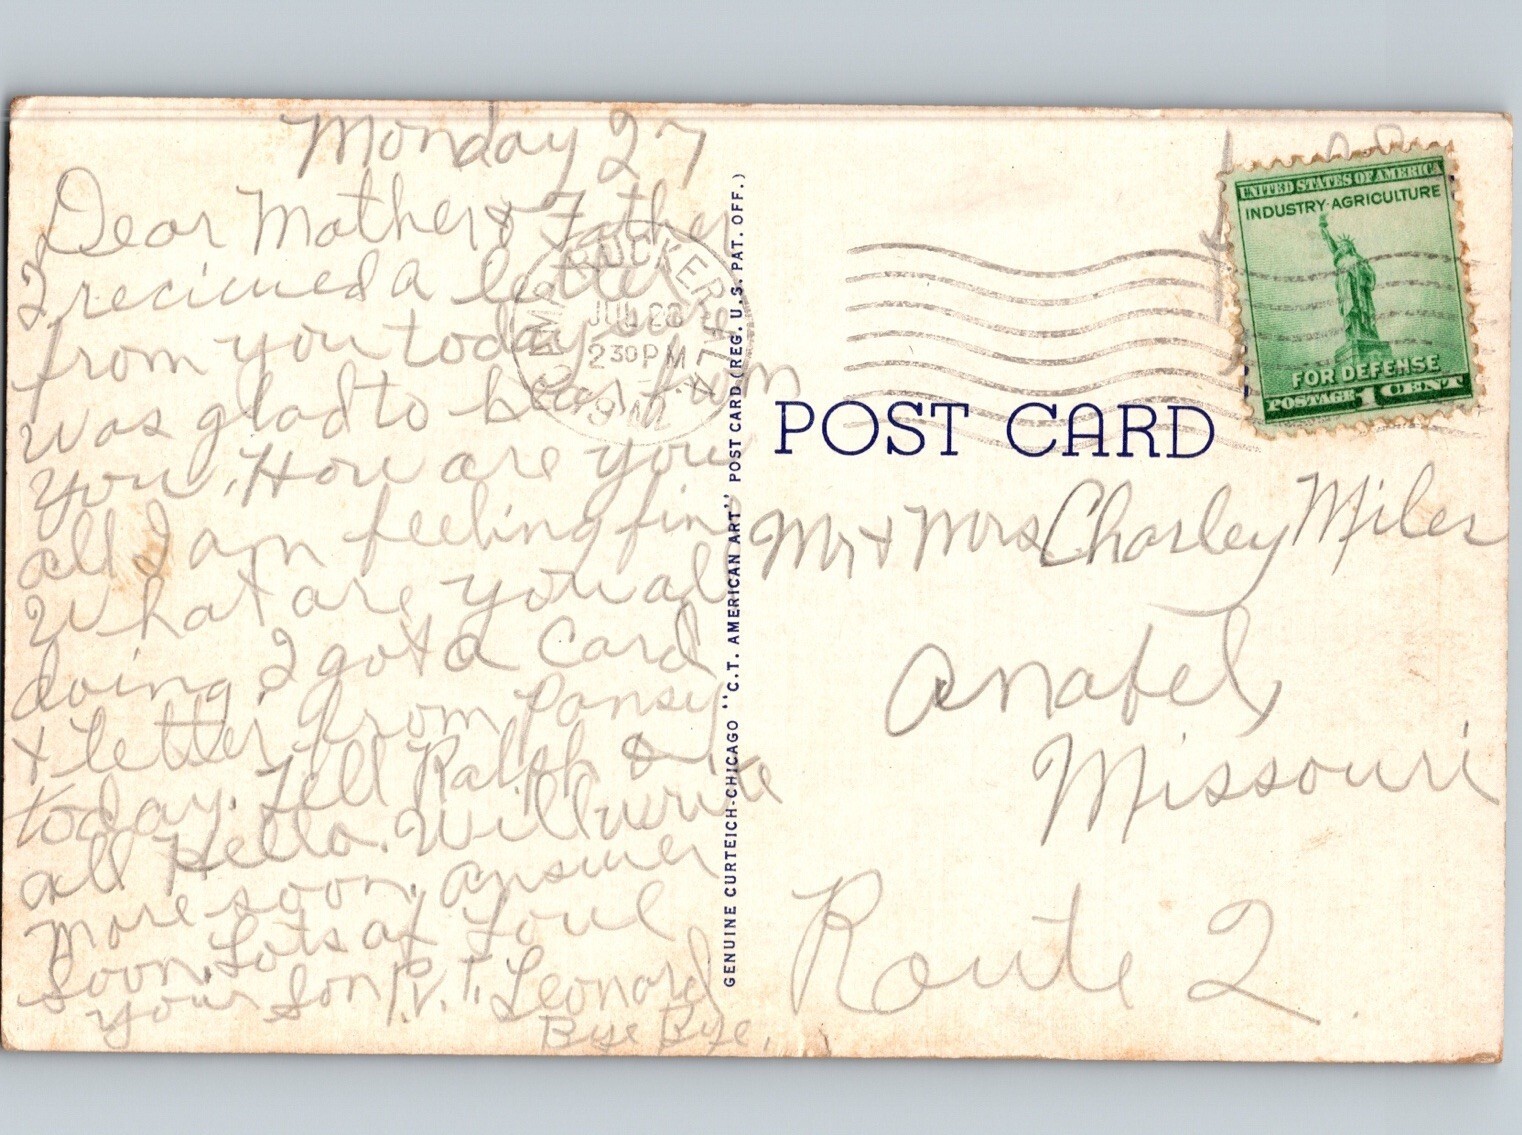 Monday 27
Dear Mother & Father
I recieued a letter
from you today
was glad to hear from
you. How are you
all I am feeling fin
What are you all
doing. I got a card
& letter from Pansy
today. Tell Ralph &
all Hello. Will write
more soon. answer
soon. Lots of Loue
your Son P.V.T. Leonard
Bye Bye.
CAMP RUCKER ALA.
JUL 28
2 30 PM
1942
GENUINE CURTEICH-CHICAGO "C.T. AMERICAN ART" POST CARD (REG. U.S. PAT. OFF.)
UNITED STATES OF AMERICA
INDUSTRY-AGRICULTURE
FOR DEFENSE
POSTAGE 1 CENT
POST CARD
Mr & Mrs Charley Miles
Anabel,
Missouri
Route 2